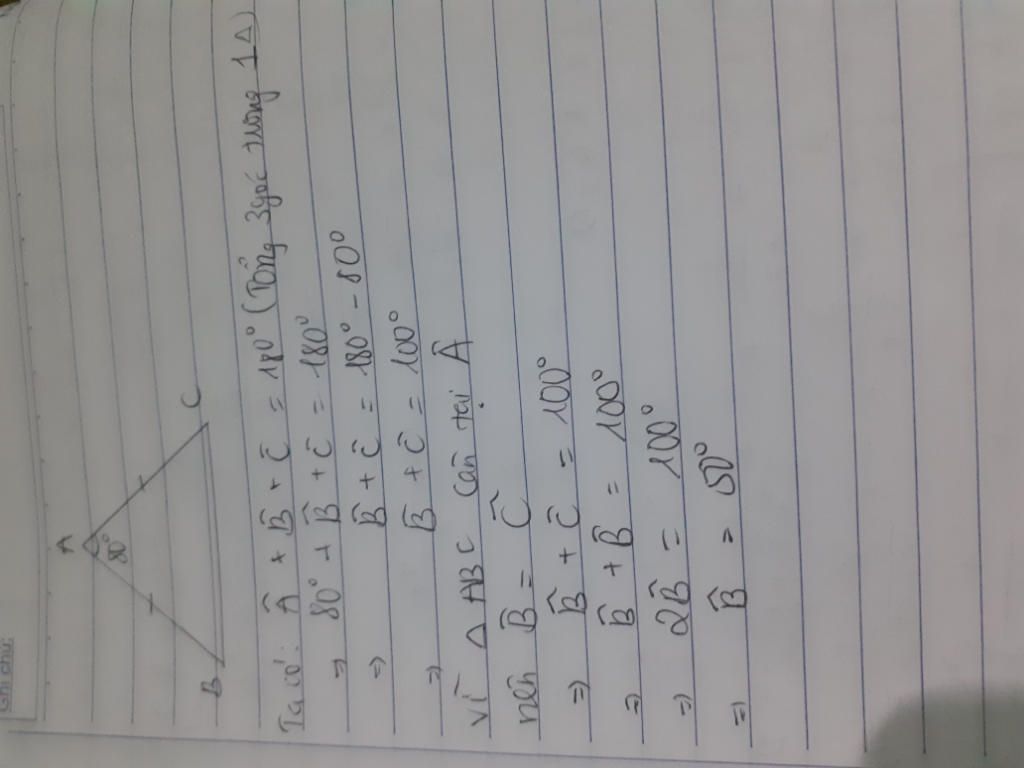 Ghi chú:
A
80°
B
C
Ta có: Â + B̂ + Ĉ = 180° (Tổng 3 góc trong 1 Δ)
=> 80° + B̂ + Ĉ = 180°
=> B̂ + Ĉ = 180° - 80°
=> B̂ + Ĉ = 100°
Vì Δ ABC cân tại Â
nên B̂ = Ĉ
=> B̂ + Ĉ = 100°
=> B̂ + B̂ = 100°
=> 2B̂ = 100°
=> B̂ = 50°